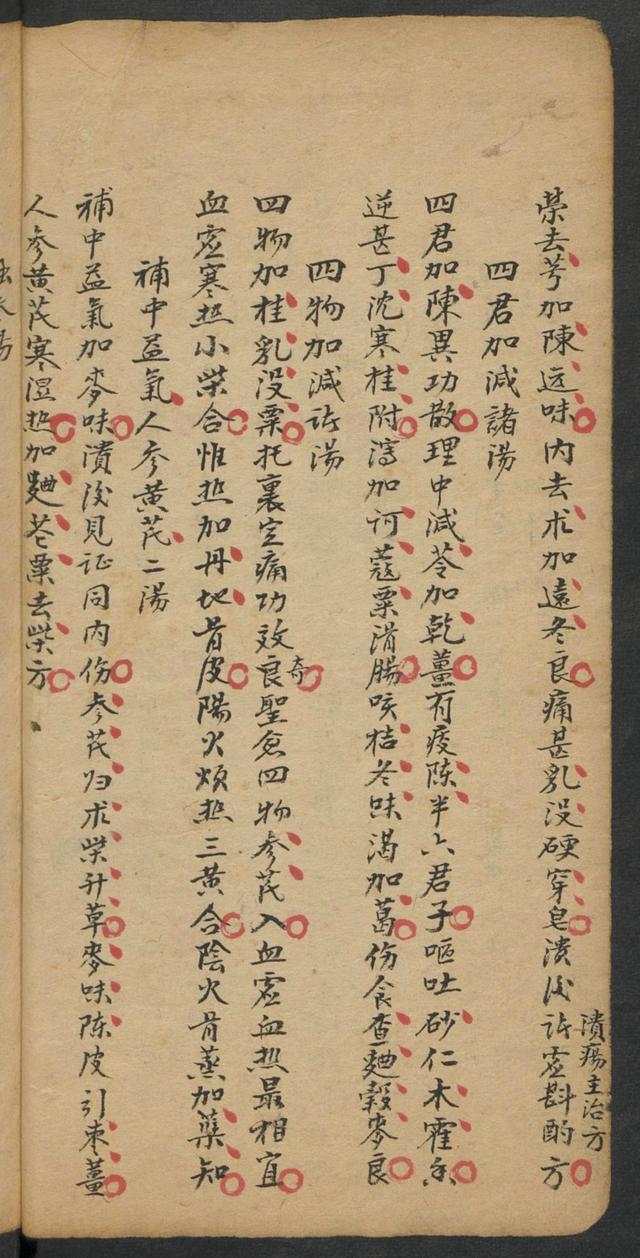 荣去芎加陳远味内去术加遠冬良痛甚乳没硬穿皂潰後諸虛斟酌方
潰瘍主治方
四君加減諸湯
四君加陳異功散理中減苓加乾薑有痰陳半六君子嘔吐砂仁木霍香
逆甚丁沈寒桂附瀉加诃蔻粟滑腸咳桔冬味渴加葛伤食查麯穀麥良
四物加減諸湯
四物加桂乳没粟托裏定痛功效良奇聖愈四物参芪入血虛血热最相宜
血虛寒热小柴合惟热加丹地骨皮陽火烦热三黄合陰火骨蒸加蘗知
補中益氣人参黄芪二湯
補中益氣加麥味潰後見証同内伤参芪归术柴升草麥味陈皮引枣薑
人参黄芪寒湿热加麯苍粟去柴方